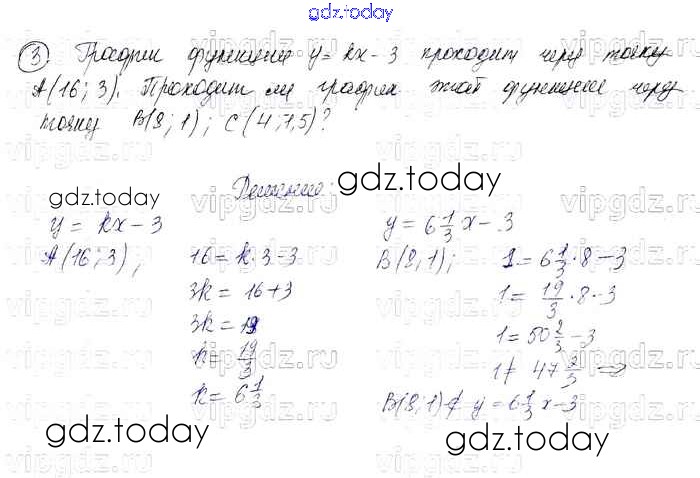 gdz.today
3 График функции y = kx - 3 проходит через точку
A(16; 3). Проходит ли график этой функции через
точку B(8; 1); C(4; 1,5)?
gdz.today
Решение:
gdz.today
y = kx - 3
A(16; 3);
16 = k·3 - 3
3k = 16 + 3
3k = 19
k = 19/3
k = 6 1/3
y = 6 1/3 x - 3
B(8, 1);
1 = 6 1/3 · 8 - 3
1 = 19/3 · 8 - 3
1 = 50 2/3 - 3
1 ≠ 47 2/3 ⇒
B(8, 1) ∉ y = 6 1/3 x - 3
gdz.today
gdz.today
vipgdz.ru